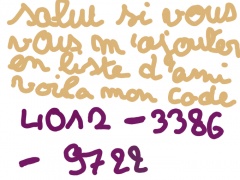 salut si vous
vous m'ajouter
en liste d'ami
voila mon code
4012-3386
- 9722